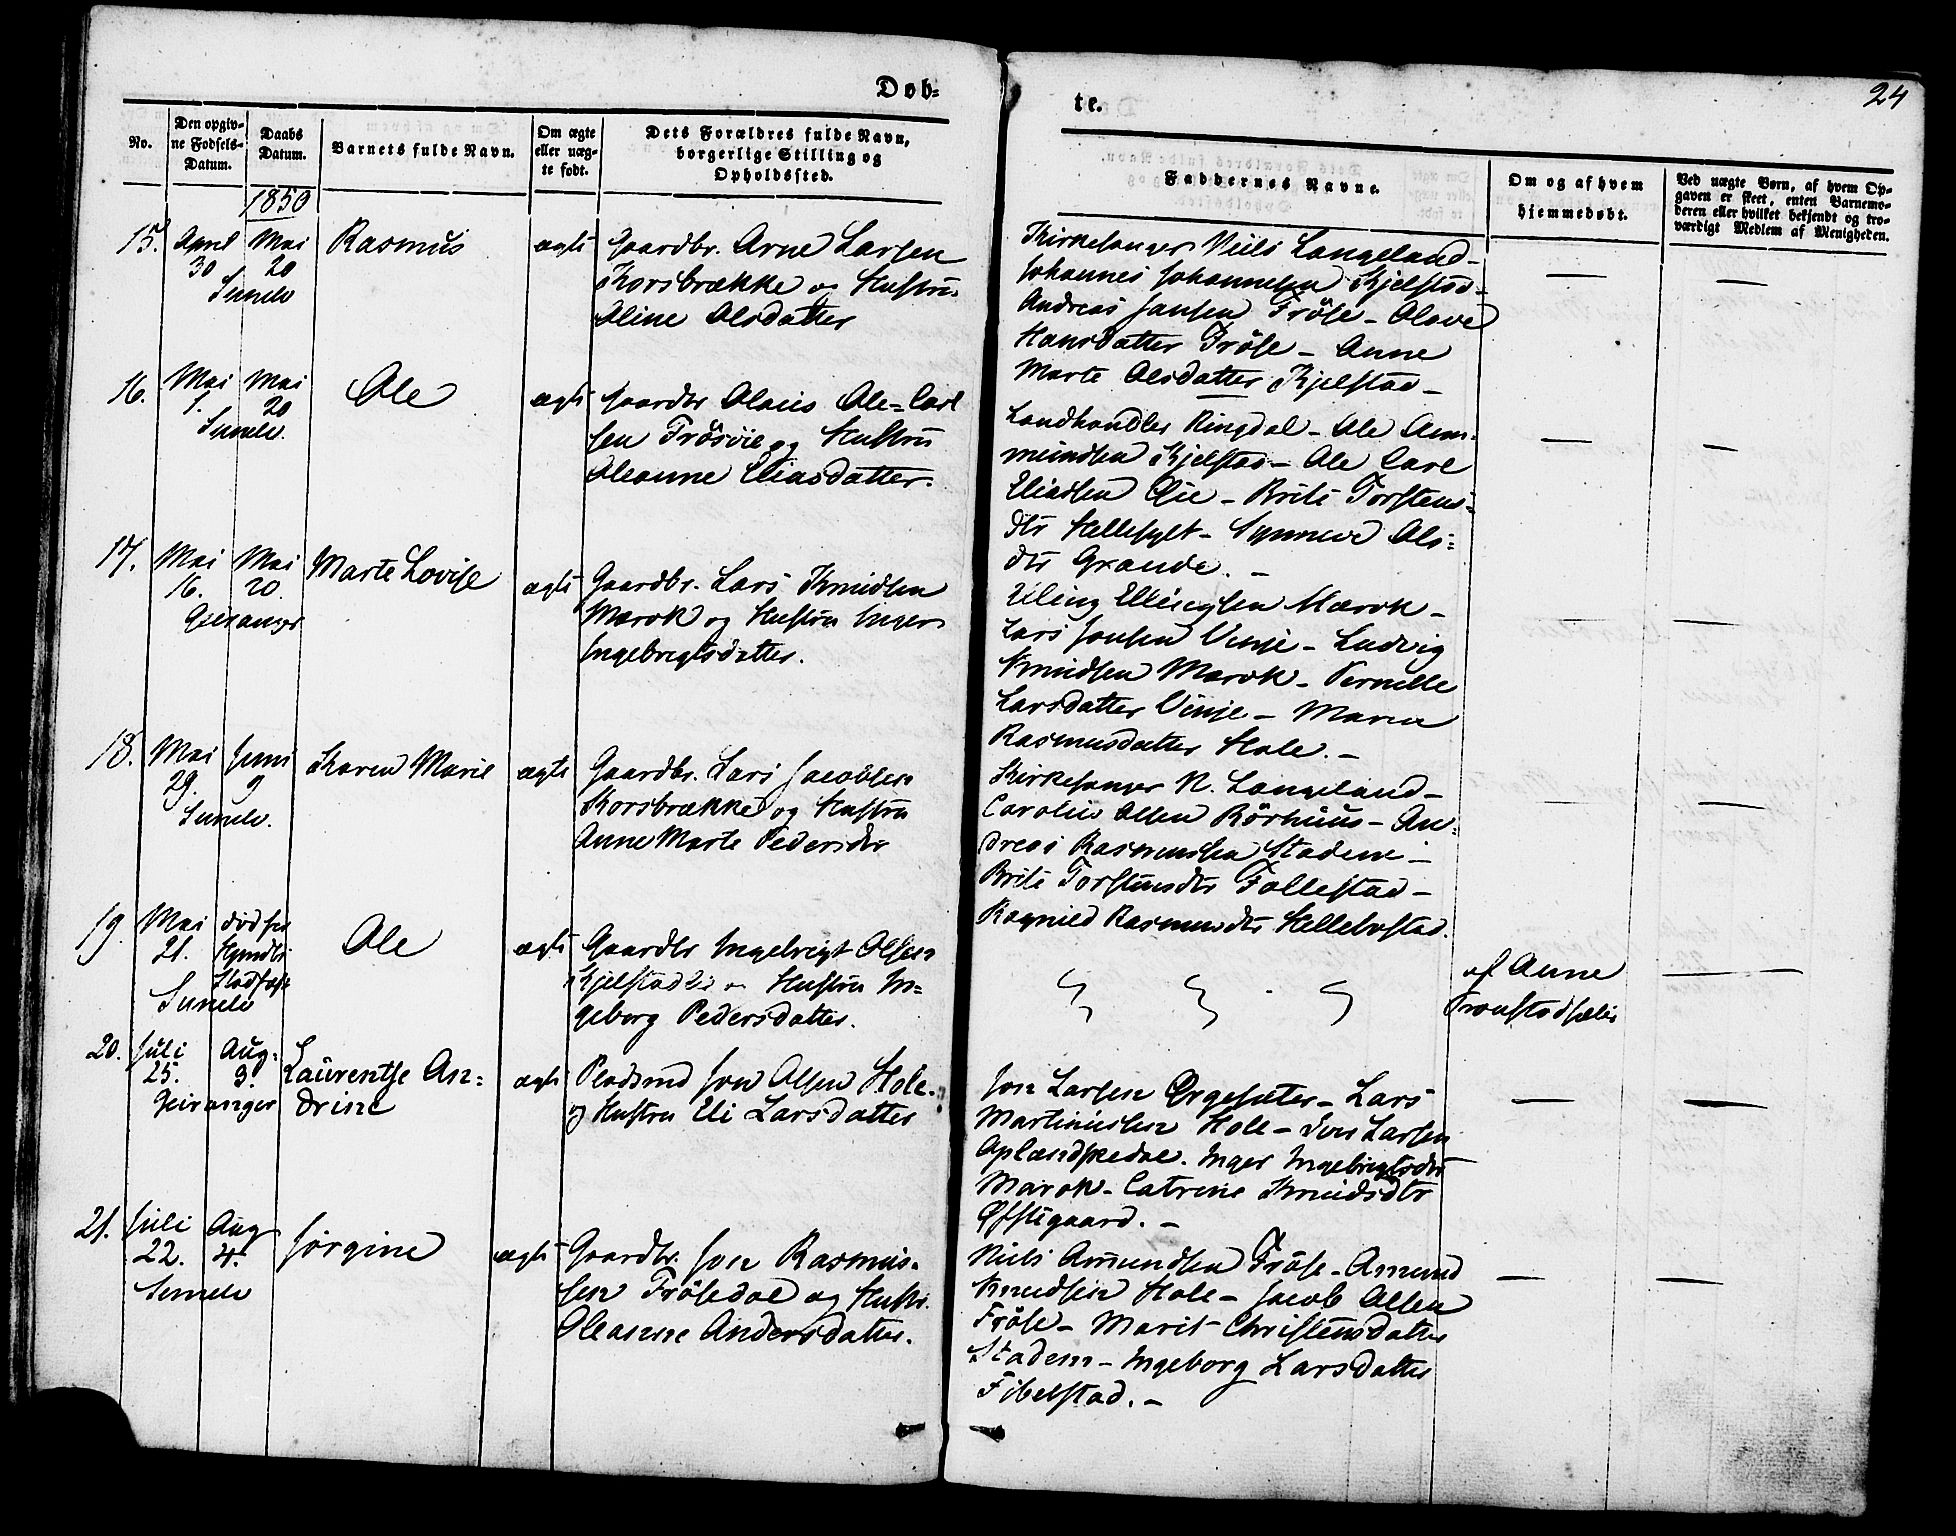 Døb-
te.
24
No.
Den opgiv-
ne Fødsels-
Datum.
Daabs
Datum.
Barnets fulde Navn.
Om ægte
eller uæg-
te født.
Dets Forældres fulde Navn,
borgerlige Stilling og
Opholdssted.
Faddernes Navne.
Om og af hvem
hjemmedøbt.
Ved uægte Børn, af hvem Op-
gaven er skeet, enten Barnemo-
deren eller hvilket bekjendt og tro-
værdigt Medlem af Menigheden.
1850
15.
April
30
Mai
20
Sunelv
Rasmus
ægte
Gaardbr. Arne Larsen
Korsbrække og Hustru
Oline Olsdatter
Kirkesanger Niels Langeland -
Johannes Johannesen Kjelstad -
Andreas Jansen Fröse - Olave
Hansdatter Fröse - Anne
Marte Olsdatter Kjelstad -
—
—
16.
Mai
1.
Mai
20
Sunelv.
Ole
ægte
Gaardbr Olaus Ole-Carl
sen og Hustru
Oleanne Eliasdatter.
Landhandler Ringdal - Ole Aam-
mundsen Kjelstad - Ole Carl
Eliassen - Brite Torstens-
dtr Hellesylt - Synneve Ols-
dtr Grande. -
—
—
17.
Mai
16.
Mai
20.
Geiranger
Marte Lovise
ægte
Gaardbr. Lars Knudsen
Marok og Hustru Inger
Ingebrigtsdatter.
Elling Ellingsen Marok -
Lars Jonsen Vinje - Ludvig
Knudsen Marok - Pernelle
Larsdatter Vinje - Maren
Rasmusdatter Hole. -
—
—
18.
Mai
29.
Juni
9
Sunelv.
Karen Marie
ægte
Gaardbr. Lars Jacobsen
Korsbrække og Hustru
Anne Marte Pedersdtr
Kirkesanger N. Langeland -
Carolus Olsen Rörhuus - An-
dreas Rasmussen Stadem -
Brite Torstensdtr Follestad -
Ragnild Rasmusdtr Hellebostad.
—
—
19.
Mai
21.
død før
Stadfæst
Sunelv
Ole
ægte
Gaardbr Ingebrigt Olsen
og Hustru In-
geborg Pedersdatter.
af Anne
—
20.
Juli
25.
Aug.
3.
Geiranger
Laurentse An-
drine
ægte
Pladsmd Jon Olsen Hole
og Hustru Eli Larsdatter
Jon Larsen Ørgesæter - Lars
Martinussen Hole - Iver Larsen
Oplændskedal. Inger Ingebrigtsdtr
Marok - Catrine Knudsdtr
Øfstegaard. -
—
—
21.
Juli
22.
Aug
4.
Sunelv
Jørgine
ægte
Gaardbr. Jon Rasmus-
sen Frösedal og Hustr.
Oleanne Andersdatter.
Niels Amundsen Fröse - Amund
Knudsen Hole - Jacob Olsen
Fröse - Marit Christensdatter
Stadem - Ingeborg Larsdatter
Fibelstad. -
—
—